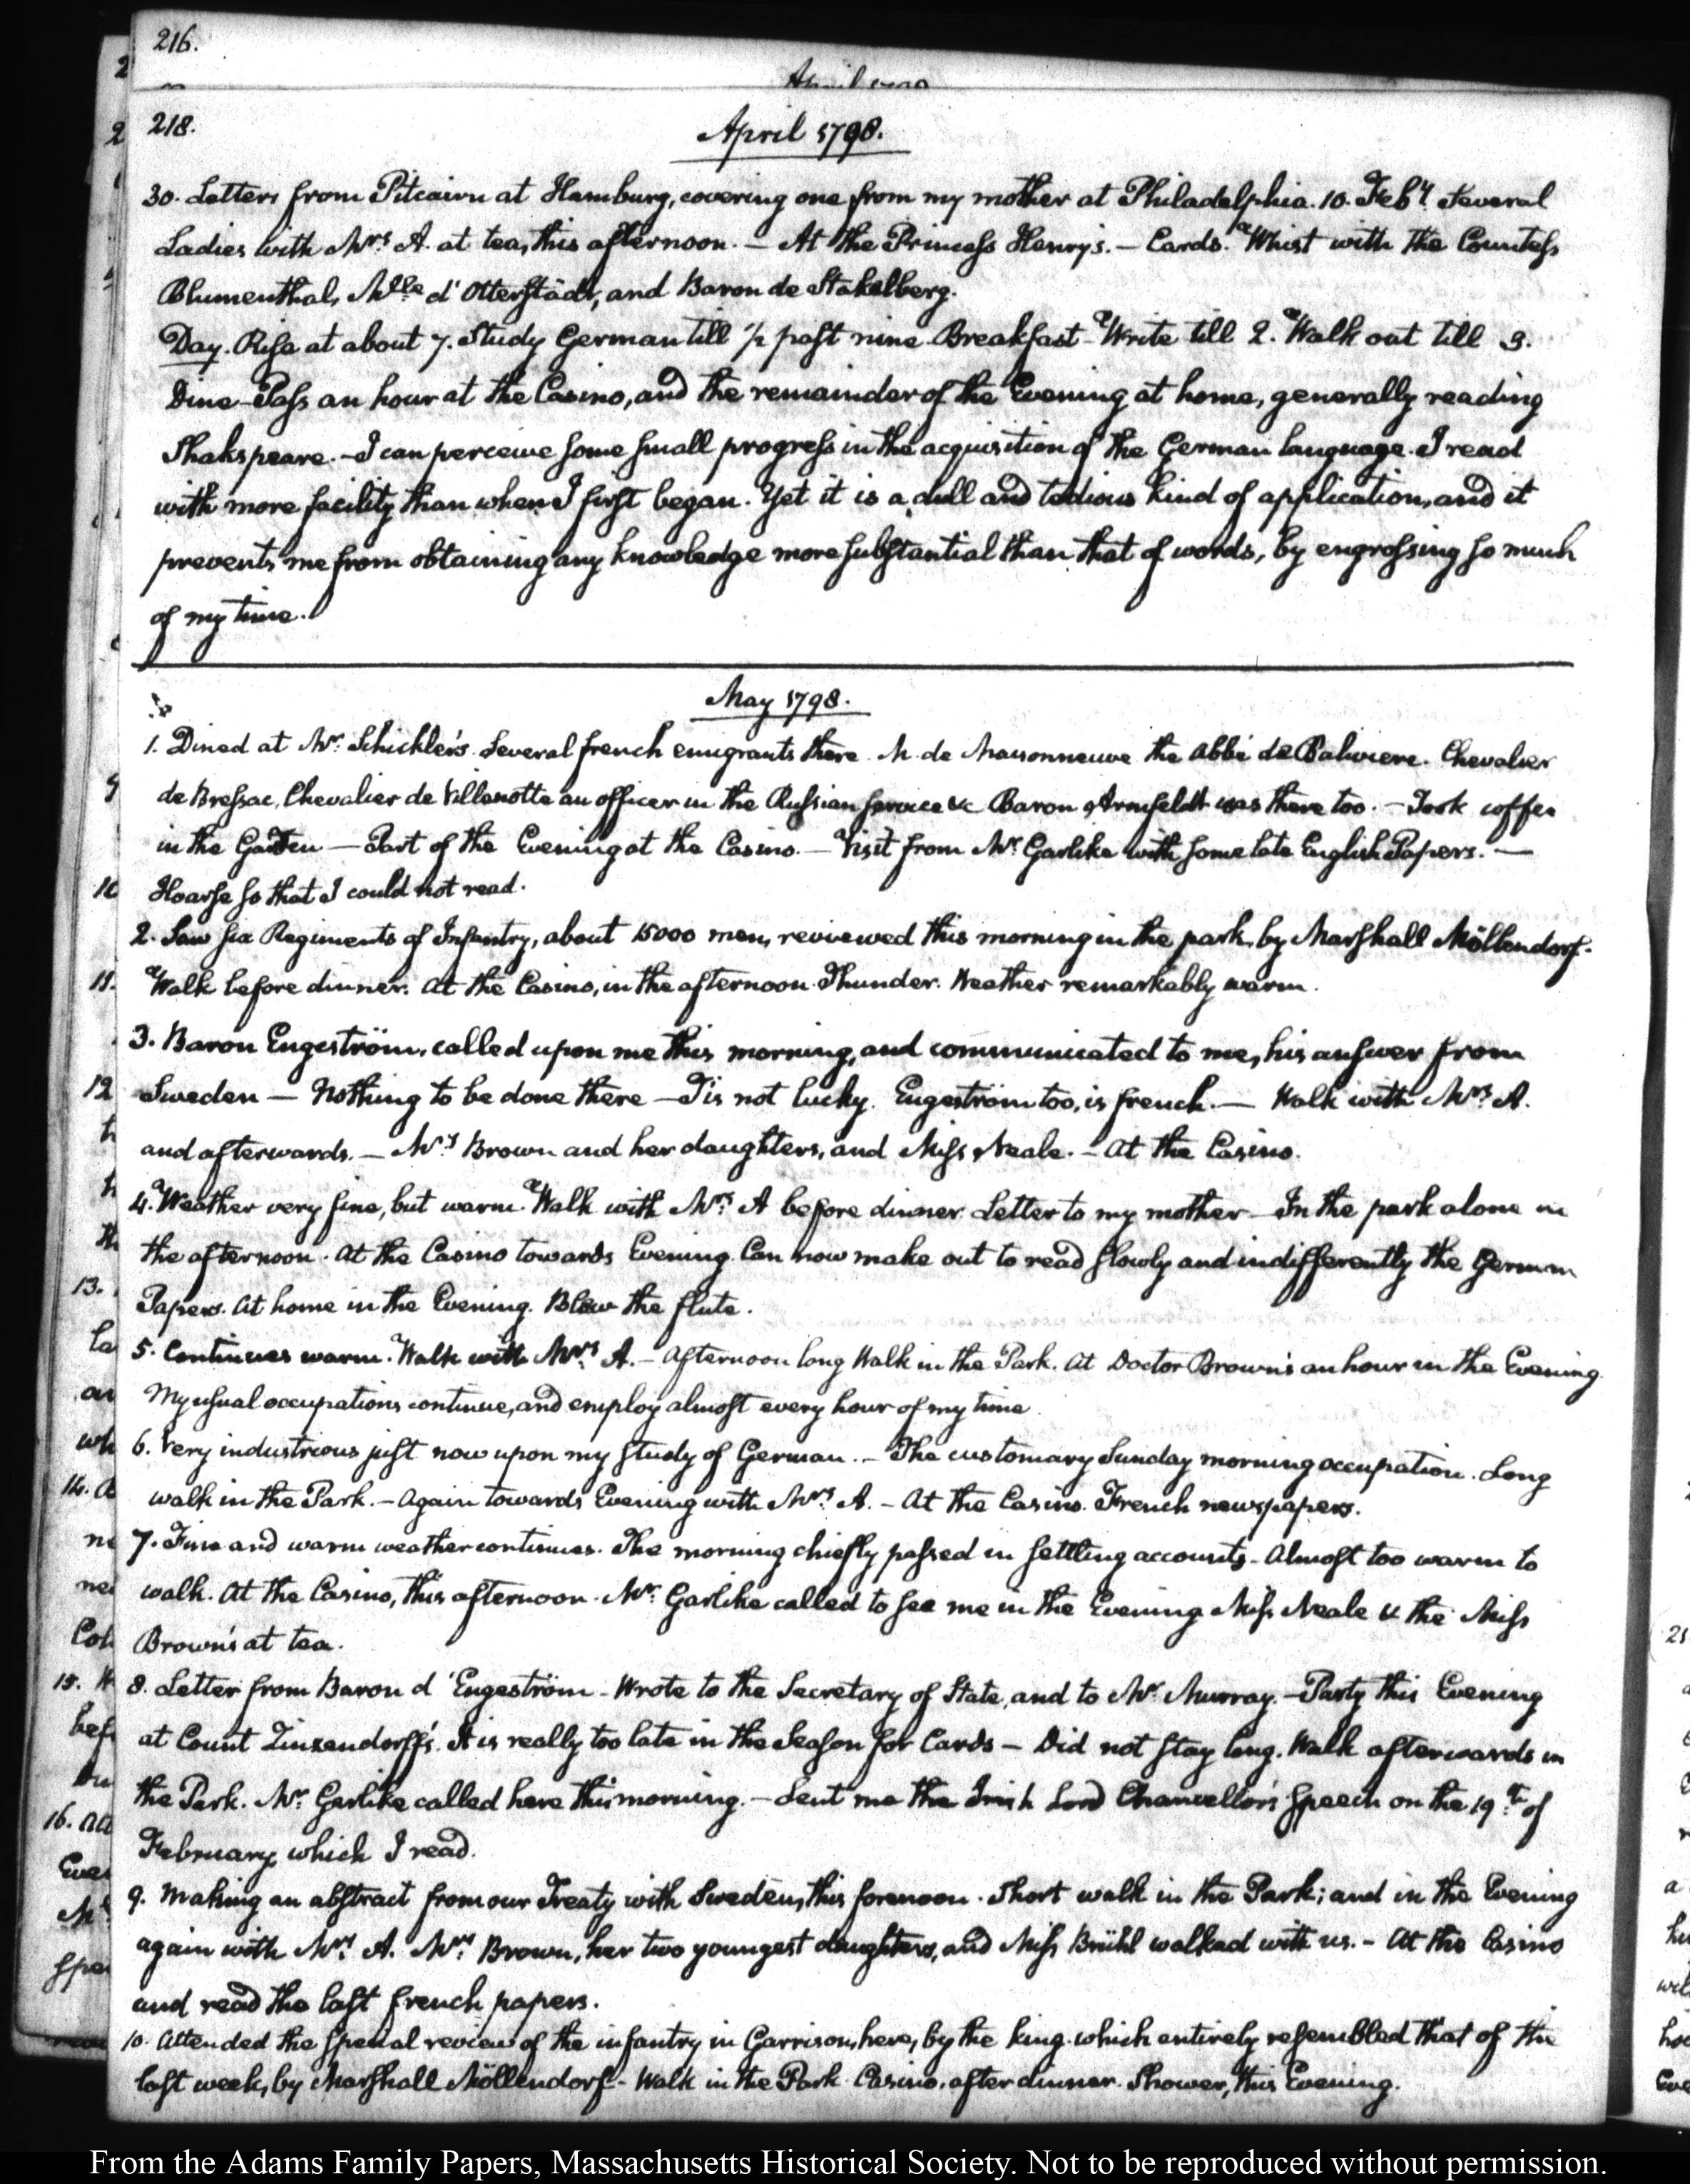 216.
218.
April 1798.
30. Letters from Pitcairn at Hamburg, covering one from my mother at Philadelphia. 10. Feby. Several
Ladies with Mrs. A. at tea, this afternoon. — At the Princess Henry's. — Cards. Whist with the Countess
Blumenthal, Mlle d'Otterstädt, and Baron de Stakelberg.
Day. Rise at about 7. Study German till ½ past nine. Breakfast — Write till 2. Walk out till 3.
Dine — Pass an hour at the Casino, and the remainder of the Evening at home, generally reading
Shakspeare. — I can perceive some small progress in the acquisition of the German language. I read
with more facility than when I first began. Yet it is a dull and tedious kind of application, and it
prevents me from obtaining any knowledge more substantial than that of words, by engrossing so much
of my time.
May 1798.
1. Dined at Mr. Schickler's. Several french emigrants there. M. de Maisonneuve the abbé de Balivière. Chevalier
de Bressac, Chevalier de Villenotte an officer in the Russian service &c Baron Armfeldt was there too. — Took coffee
in the Garden — Part of the Evening at the Casino. — Visit from Mr. Garlike with some late English Papers. —
Hoarse so that I could not read.
2. Saw six Regiments of Infantry, about 15000 men, reviewed this morning in the park, by Marshall Möllendorf.
Walk before dinner. At the Casino, in the afternoon. Thunder. Weather remarkably warm.
3. Baron Engeström, called upon me this morning, and communicated to me, his answer from
Sweden — Nothing to be done there — Tis not lucky. Engeström too, is french. — Walk with Mrs. A.
and afterwards. — Mrs. Brown and her daughters, and Miss Neale. — At the Casino.
4. Weather very fine, but warm. Walk with Mrs. A before dinner. Letter to my mother — In the park alone in
the afternoon. At the Casino towards Evening. Can now make out to read slowly and indifferently the German
Papers. At home in the Evening. Blew the flute.
5. Continues warm. Walk with Mrs. A. — Afternoon long Walk in the Park. At Doctor Brown's an hour in the Evening
My usual occupations continue, and employ almost every hour of my time.
6. Very industrious just now upon my study of German. — The customary Sunday morning occupation. Long
walk in the Park. — Again towards Evening with Mrs. A. — At the Casino. French newspapers.
7. Fine and warm weather continues. The morning chiefly passed in settling accounts. Almost too warm to
walk. At the Casino, this afternoon. Mr. Garlike called to see me in the Evening Miss Neale & the Miss
Brown's at tea.
8. Letter from Baron d'Engeström — Wrote to the Secretary of State, and to Mr. Murray. — Party this Evening
at Count Zinzendorff's. It is really too late in the Season for Cards — Did not stay long. Walk afterwards in
the Park. Mr. Garlike called here this morning. — Sent me the Irish Lord Chancellor's speech on the 19th. of
February, which I read.
9. Making an abstract from our Treaty with Sweden, this forenoon. Short walk in the Park; and in the Evening
again with Mrs. A. Mrs. Brown, her two youngest daughters, and Miss Brühl walked with us. — At the Casino
and read the last french papers.
10. Attended the special review of the infantry in Garrison, here, by the king. which entirely resembled that of the
last week, by Marshall Möllendorf — Walk in the Park. Casino, after dinner. Shower, this Evening.
From the Adams Family Papers, Massachusetts Historical Society. Not to be reproduced without permission.